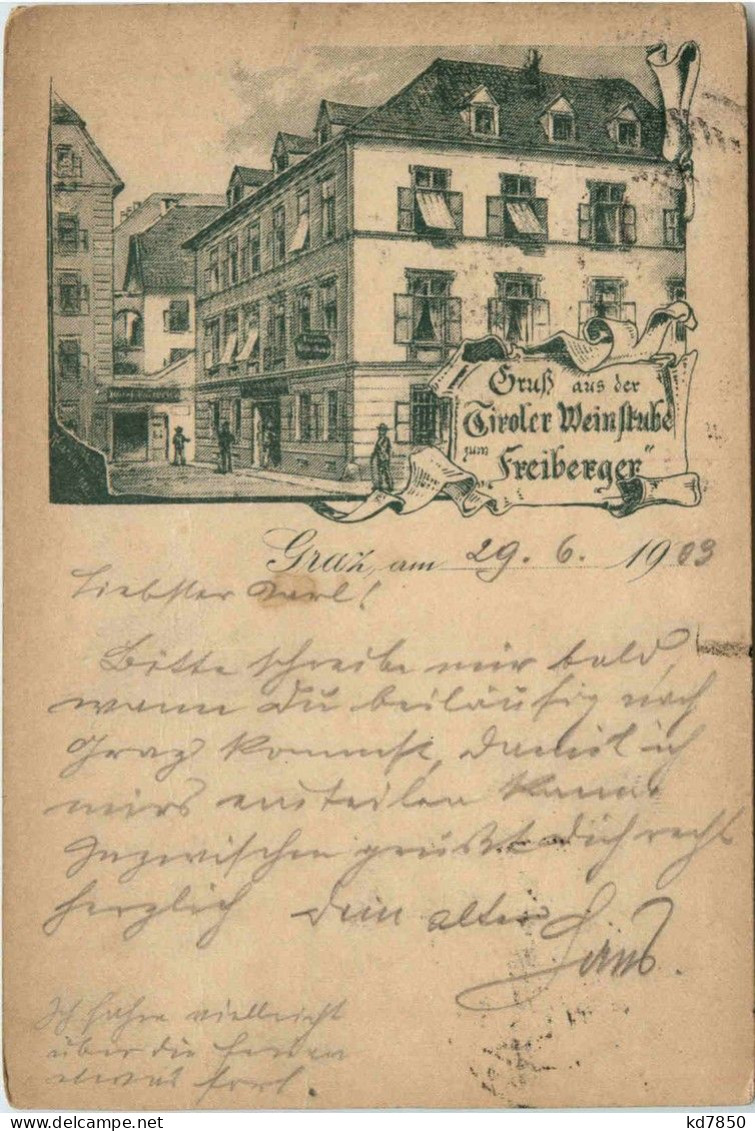 Gruß aus der
Tiroler Weinstube
zum
"Freiberger"
Graz, am 29. 6. 1903
Liebster Karl!
Bitte schreibe mir bald,
wann Du beiläufig nach
Graz kommst, damit ich
mirs einteilen kann.
Inzwischen grüßt Dich recht
herzlich Dein alter
Hans.
Ich fahre vielleicht
über die Ferien
etwas fort.
kd7850